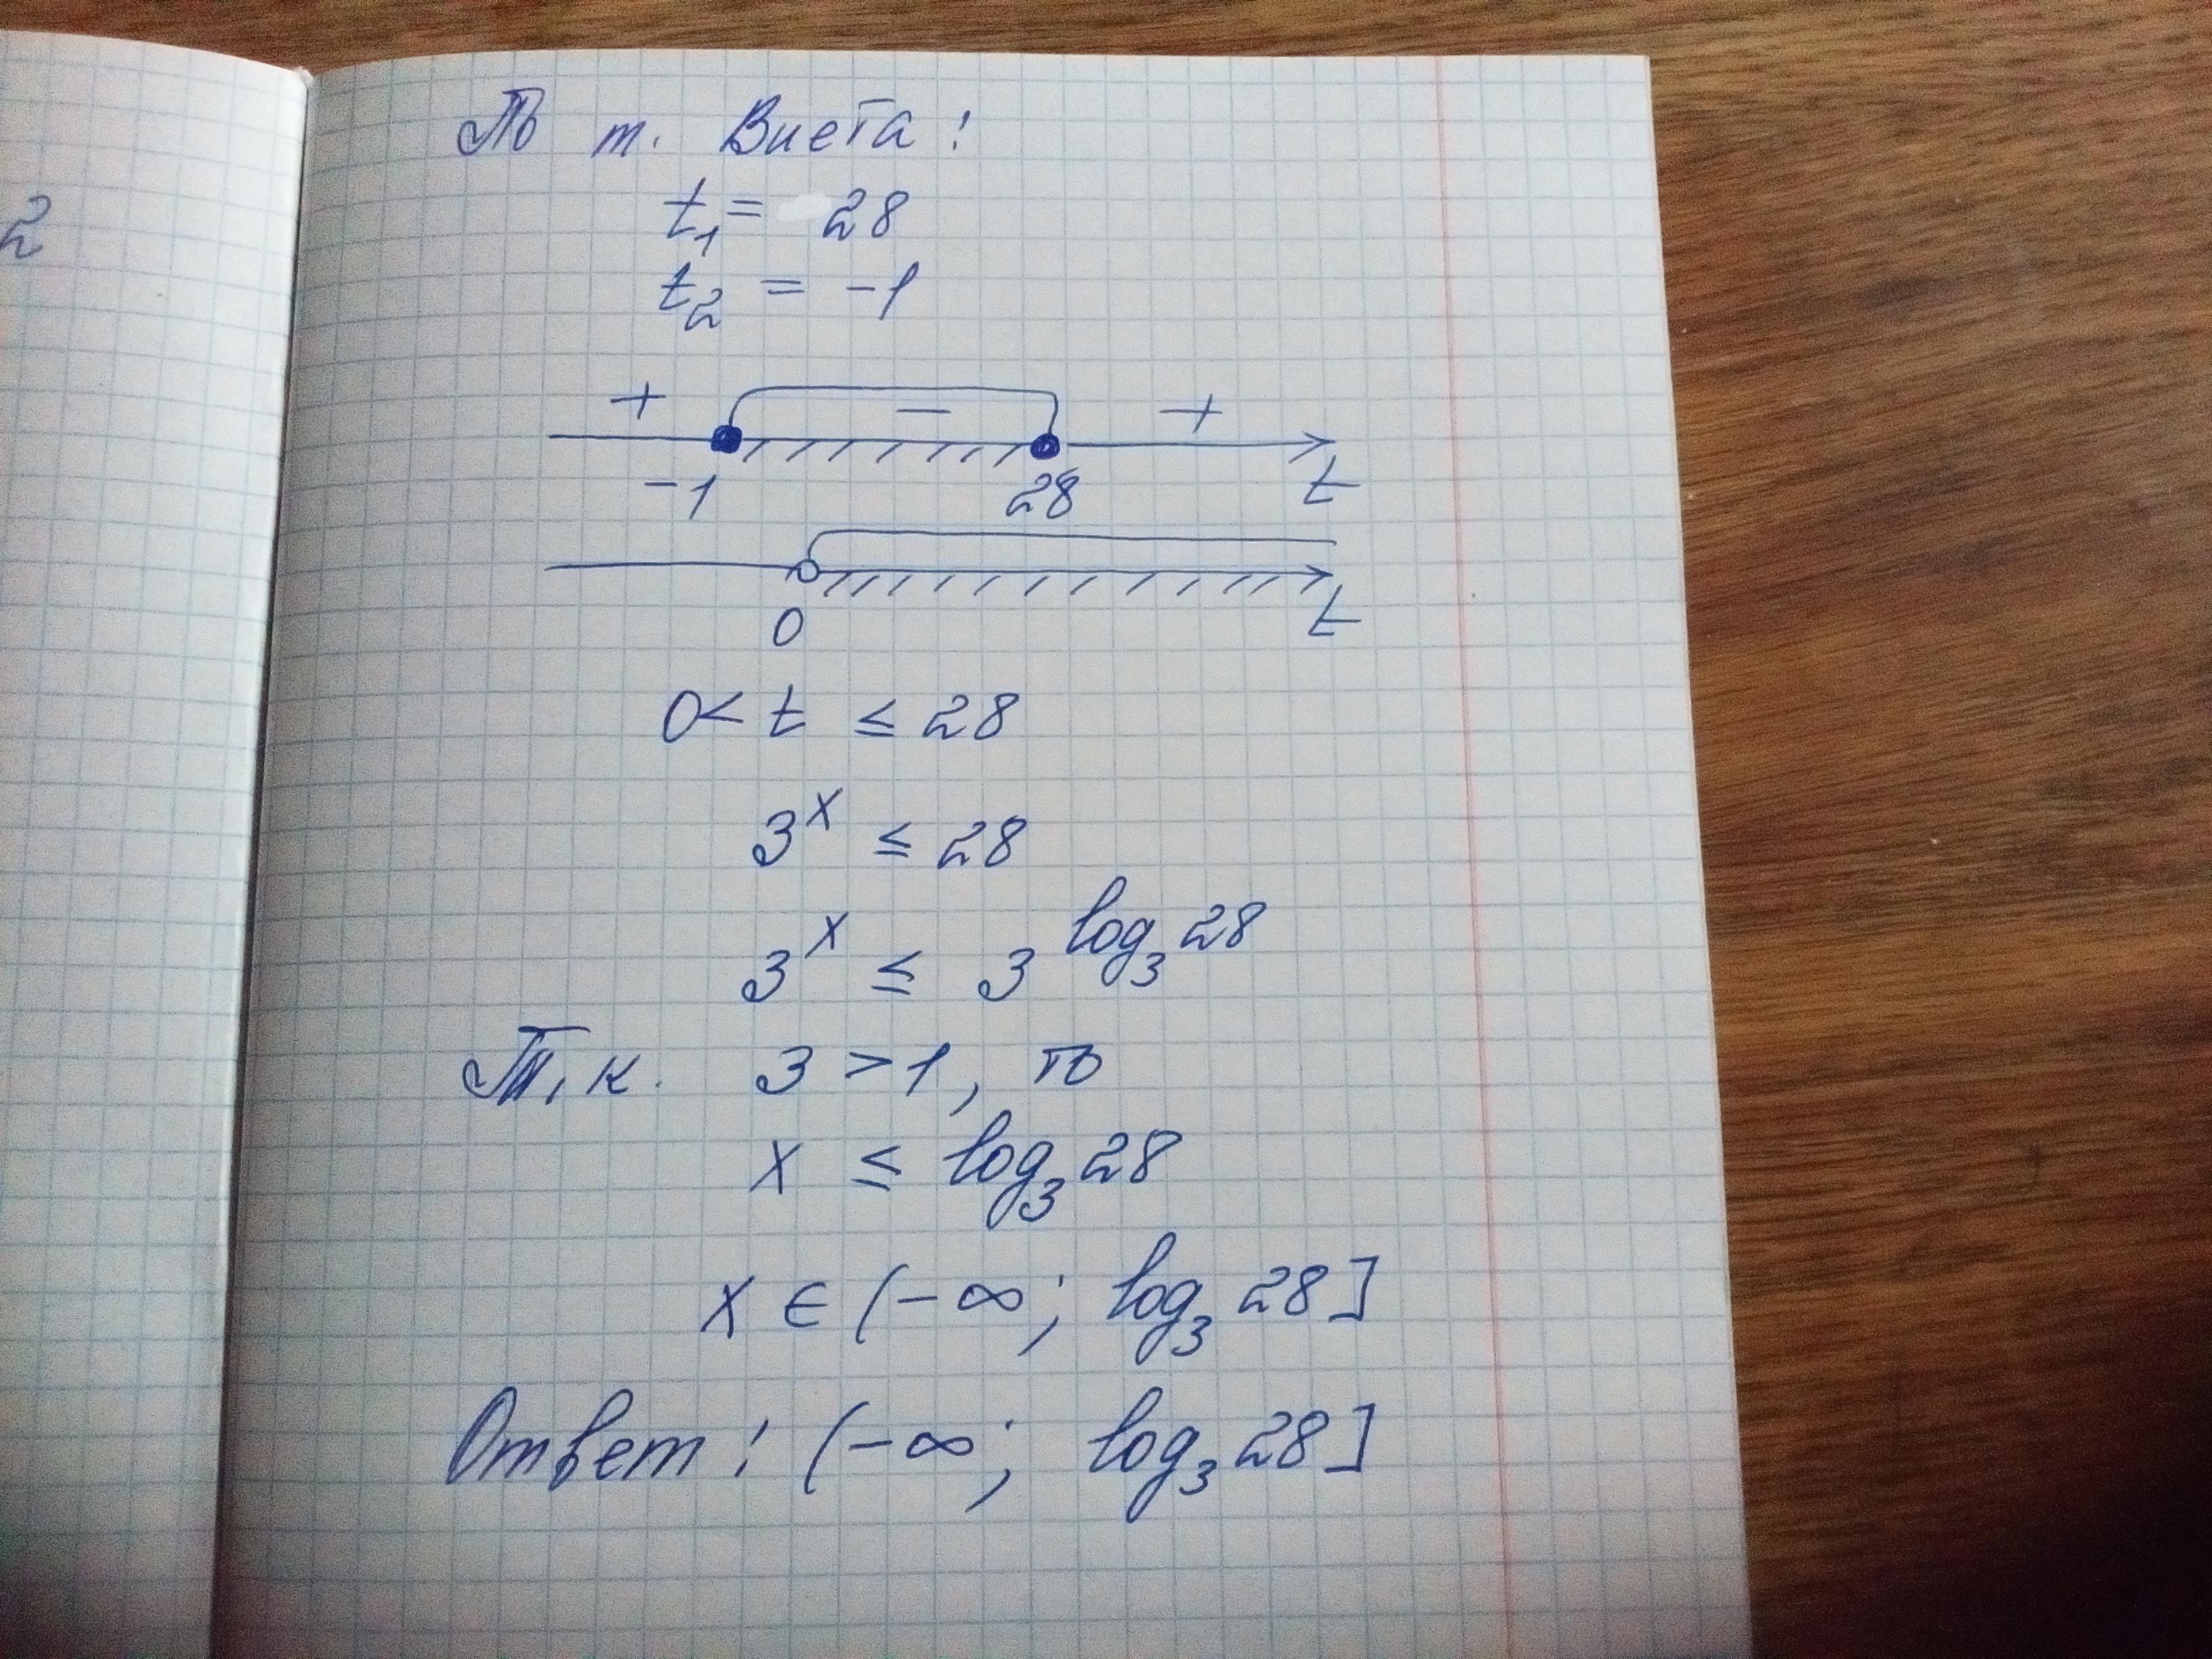 2
По т. Виета:
t₁ = 28
t₂ = -1
+ - +
-1 28 t
0 t
0 < t ≤ 28
3ˣ ≤ 28
3ˣ ≤ 3^log₃28
Т.к. 3 > 1, то
x ≤ log₃28
x ∈ (-∞; log₃28]
Ответ: (-∞; log₃28]